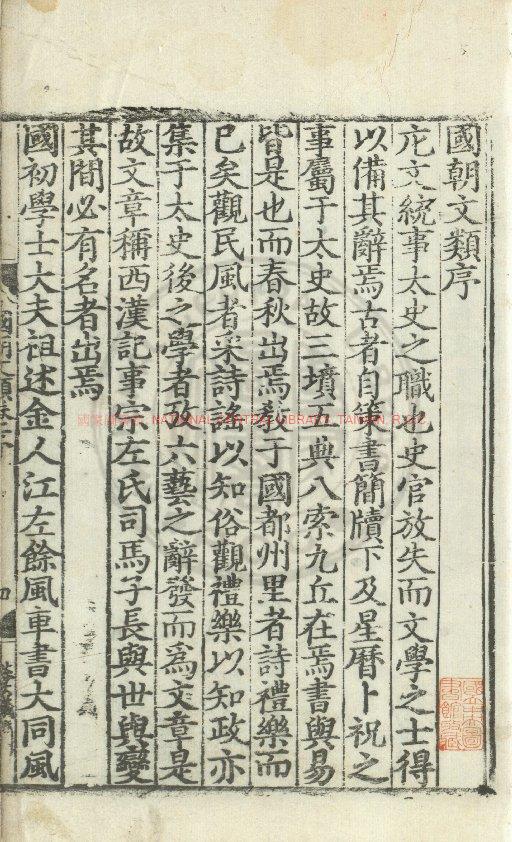 國朝文類序
庀文統事太史之職也史官放失而文學之士得
以備其辭焉古者自策書簡牘下及星曆卜祝之
事屬于太史故三墳五典八索九丘在焉書與易
皆是也而春秋出焉教于國都州里者詩禮樂而
已矣觀民風者采詩謠以知俗觀禮樂以知政亦
集于太史後之學者攷六藝之辭發而為文章是
故文章稱西漢記事宗左氏司馬子長與世與變
其間必有名者出焉
國初學士大夫祖述金人江左餘風車書大同風
NATIONAL CENTRAL LIBRARY, TAIWAN, R.O.C.